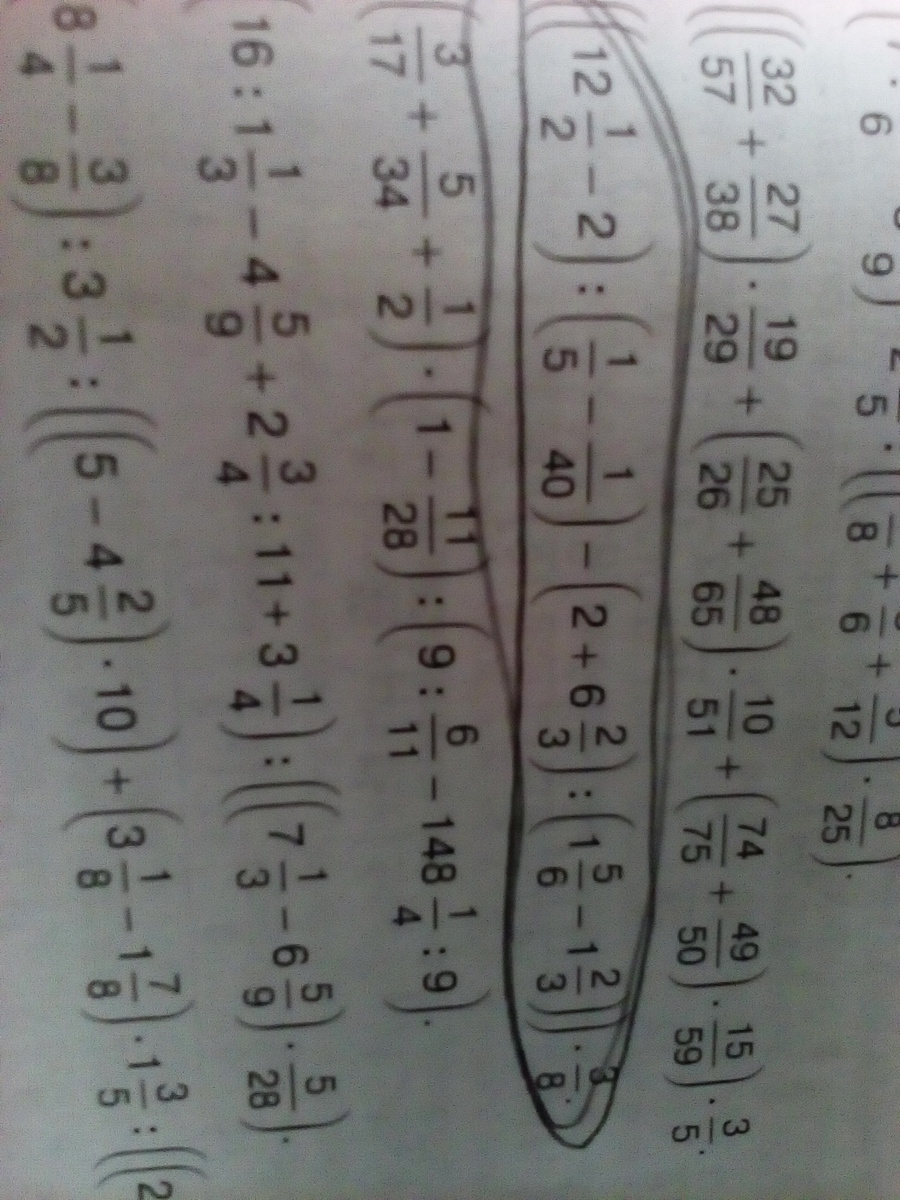 7 · 6 9) 2 5 · ((/8 + /6 + 5/12) · 8/25).
((32/57 + 27/38) · 19/29 + (25/26 + 48/65) · 10/51 + (74/75 + 49/50) · 15/59) · 3/5.
((12 1/2 − 2) : (1/5 − 1/40) − (2 + 6 2/3) : (1 5/6 − 1 2/3)) · 3/8.
(3/17 + 5/34 + 1/2) · (1 − 11/28) : (9 : 6/11 − 148 1/4 : 9).
(16 : 1 1/3 − 4 5/9 + 2 3/4 : 11 + 3 1/4) : ((7 1/3 − 6 5/9) · 5/28).
(8 1/4 − 3/8) : 3 1/2 : ((5 − 4 2/5) · 10) + (3 1/8 − 1 7/8) · 1 3/5 : ((2